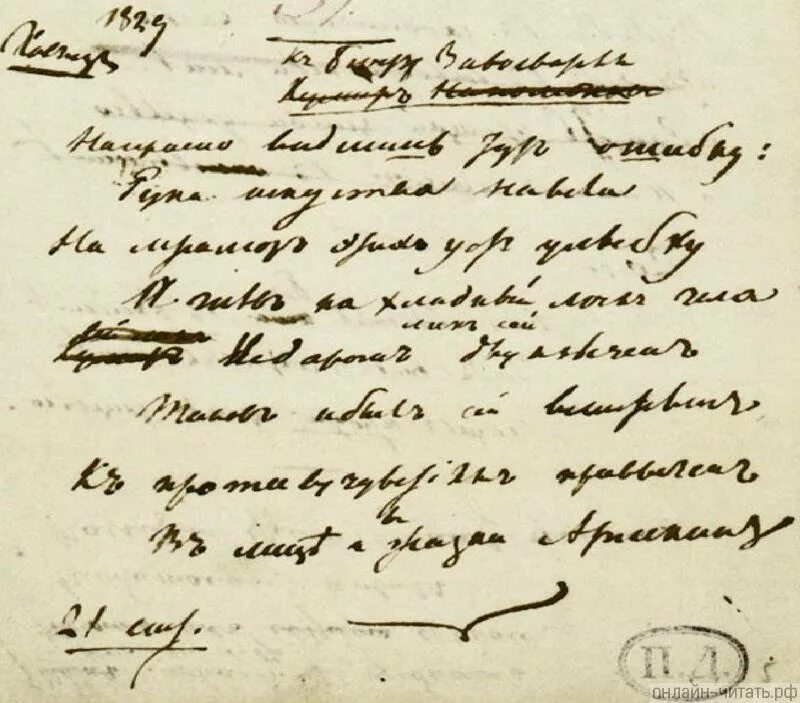 1829
Къ бюсту Завоевателя
Напрасно видишь тутъ ошибку:
Рука искуства навела
На мраморъ этихъ устъ улыбку
И гнѣвъ на хладный лоскъ чела
ликъ сей
Недаромъ двуязыченъ
Таковъ и былъ сей властелинъ
Къ противучувствіямъ привыченъ
Въ лицѣ и въ жизни Арлекинъ
21
П.Д.
онлайн-читать.рф